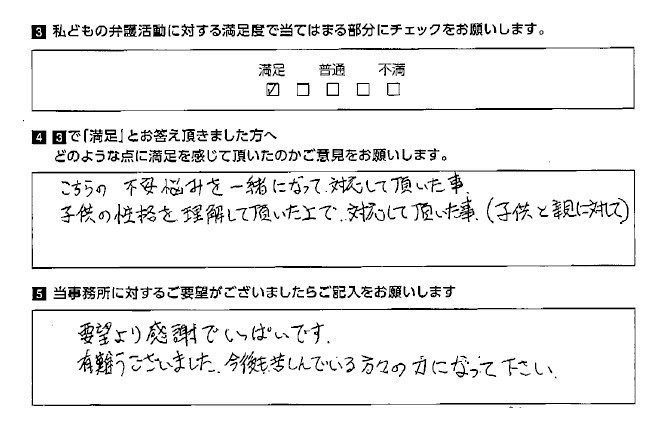 3 私どもの弁護活動に対する満足度で当てはまる部分にチェックをお願いします。
満足 普通 不満
☑ □ □ □ □
4 3で「満足」とお答え頂きました方へ
どのような点に満足を感じて頂いたのかご意見をお願いします。
こちらの 不安悩みを一緒になって対応して頂いた事.
子供の性格を理解して頂いた上で、対応して頂いた事.(子供と親に対して)
5 当事務所に対するご要望がございましたらご記入をお願いします
要望より感謝でいっぱいです.
有難うございました、今後も苦しんでいる方々の力になって下さい.